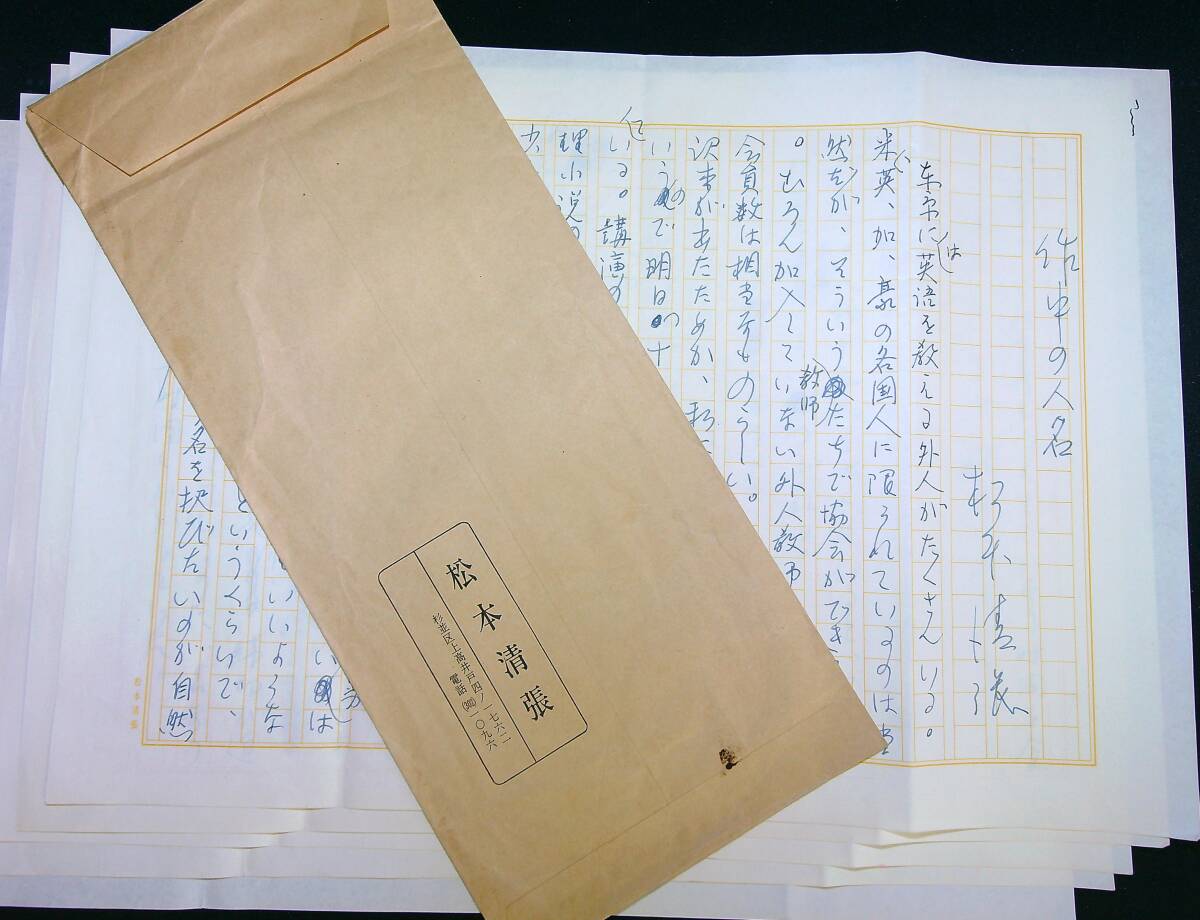 作中の人名
松本清張
東京には英語を教える外人がたくさんいる。
米英、加、豪の各国人に限られているのは当
然だが、そういう教師たちで協会ができ
。むろん加入していない外人教師
会員数は相当なものらしい。
訳本があたためか、私に
いうので明日の十
いる。講演の
理小説の
いは
いいような
というくらいで、
名を択びたいのが自然
松本清張
杉並区上高井戸四ノ一七六二
電話
一〇九六
松本清張